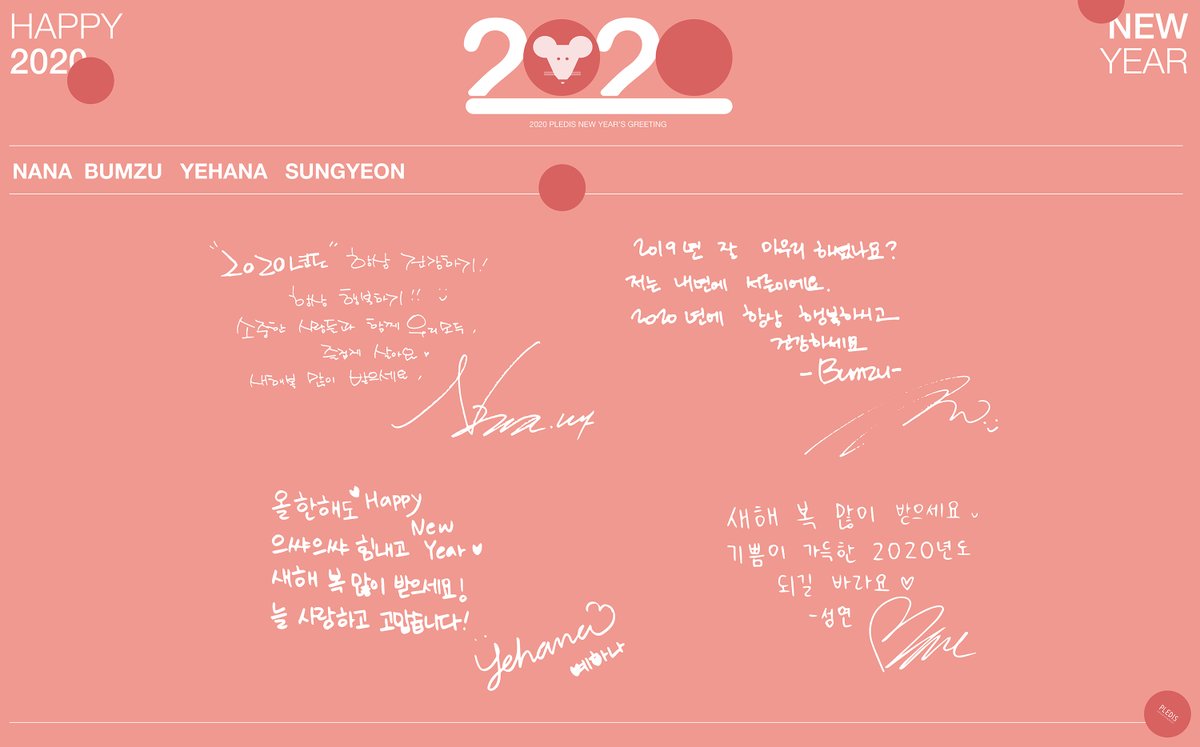 HAPPY
2020
2020
2020 PLEDIS NEW YEAR'S GREETING
NEW
YEAR
NANA BUMZU YEHANA SUNGYEON
"2020년도" 항상 건강하기!
항상 행복하기!!
소중한 사람들과 함께 우리모두,
즐겁게 살아요
새해복 많이 받으세요
2019년 잘 마무리 하셨나요?
저는 내번에 서른이에요.
2020년에 항상 행복하시고
건강하세요
-Bumzu-
올 한해도 Happy
New
으쌰으쌰 힘내고 Year
새해 복 많이 받으세요!
늘 사랑하고 고맙습니다!
Yehana
예하나
새해 복 많이 받으세요
기쁨이 가득한 2020년도
되길 바라요
-성연
PLEDIS